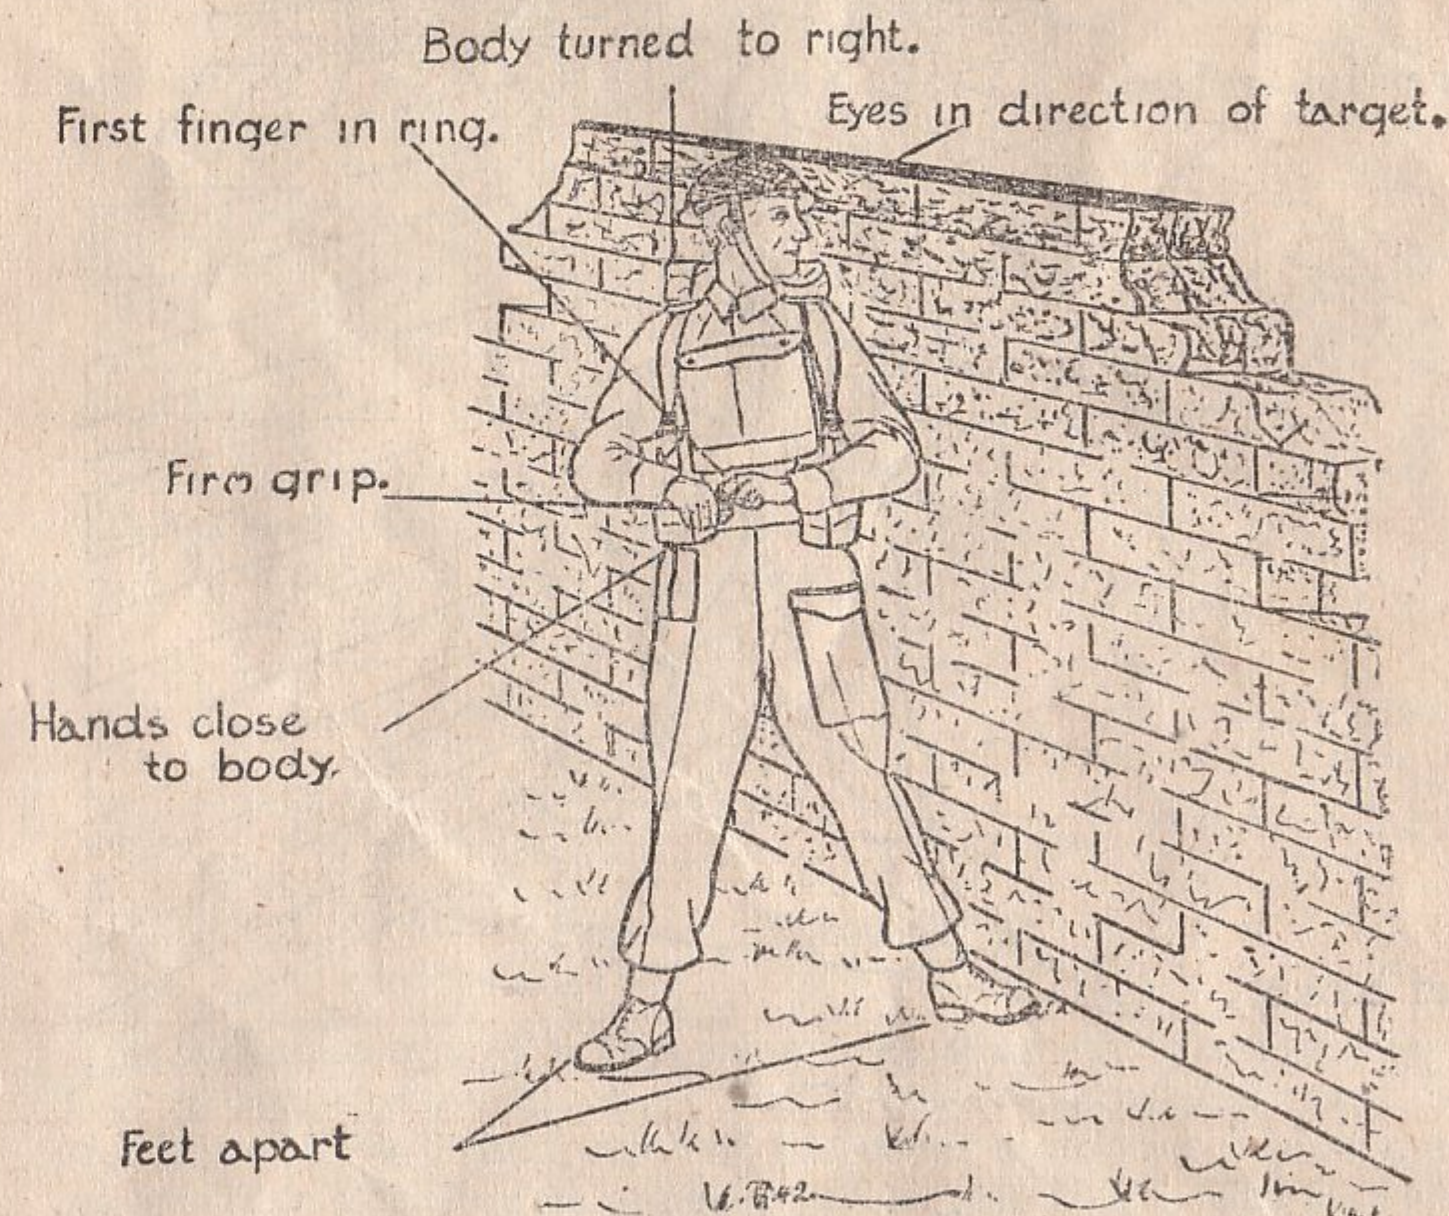 Body turned to right.
First finger in ring.
Eyes in direction of target.
Firm grip.
Hands close
to body.
Feet apart